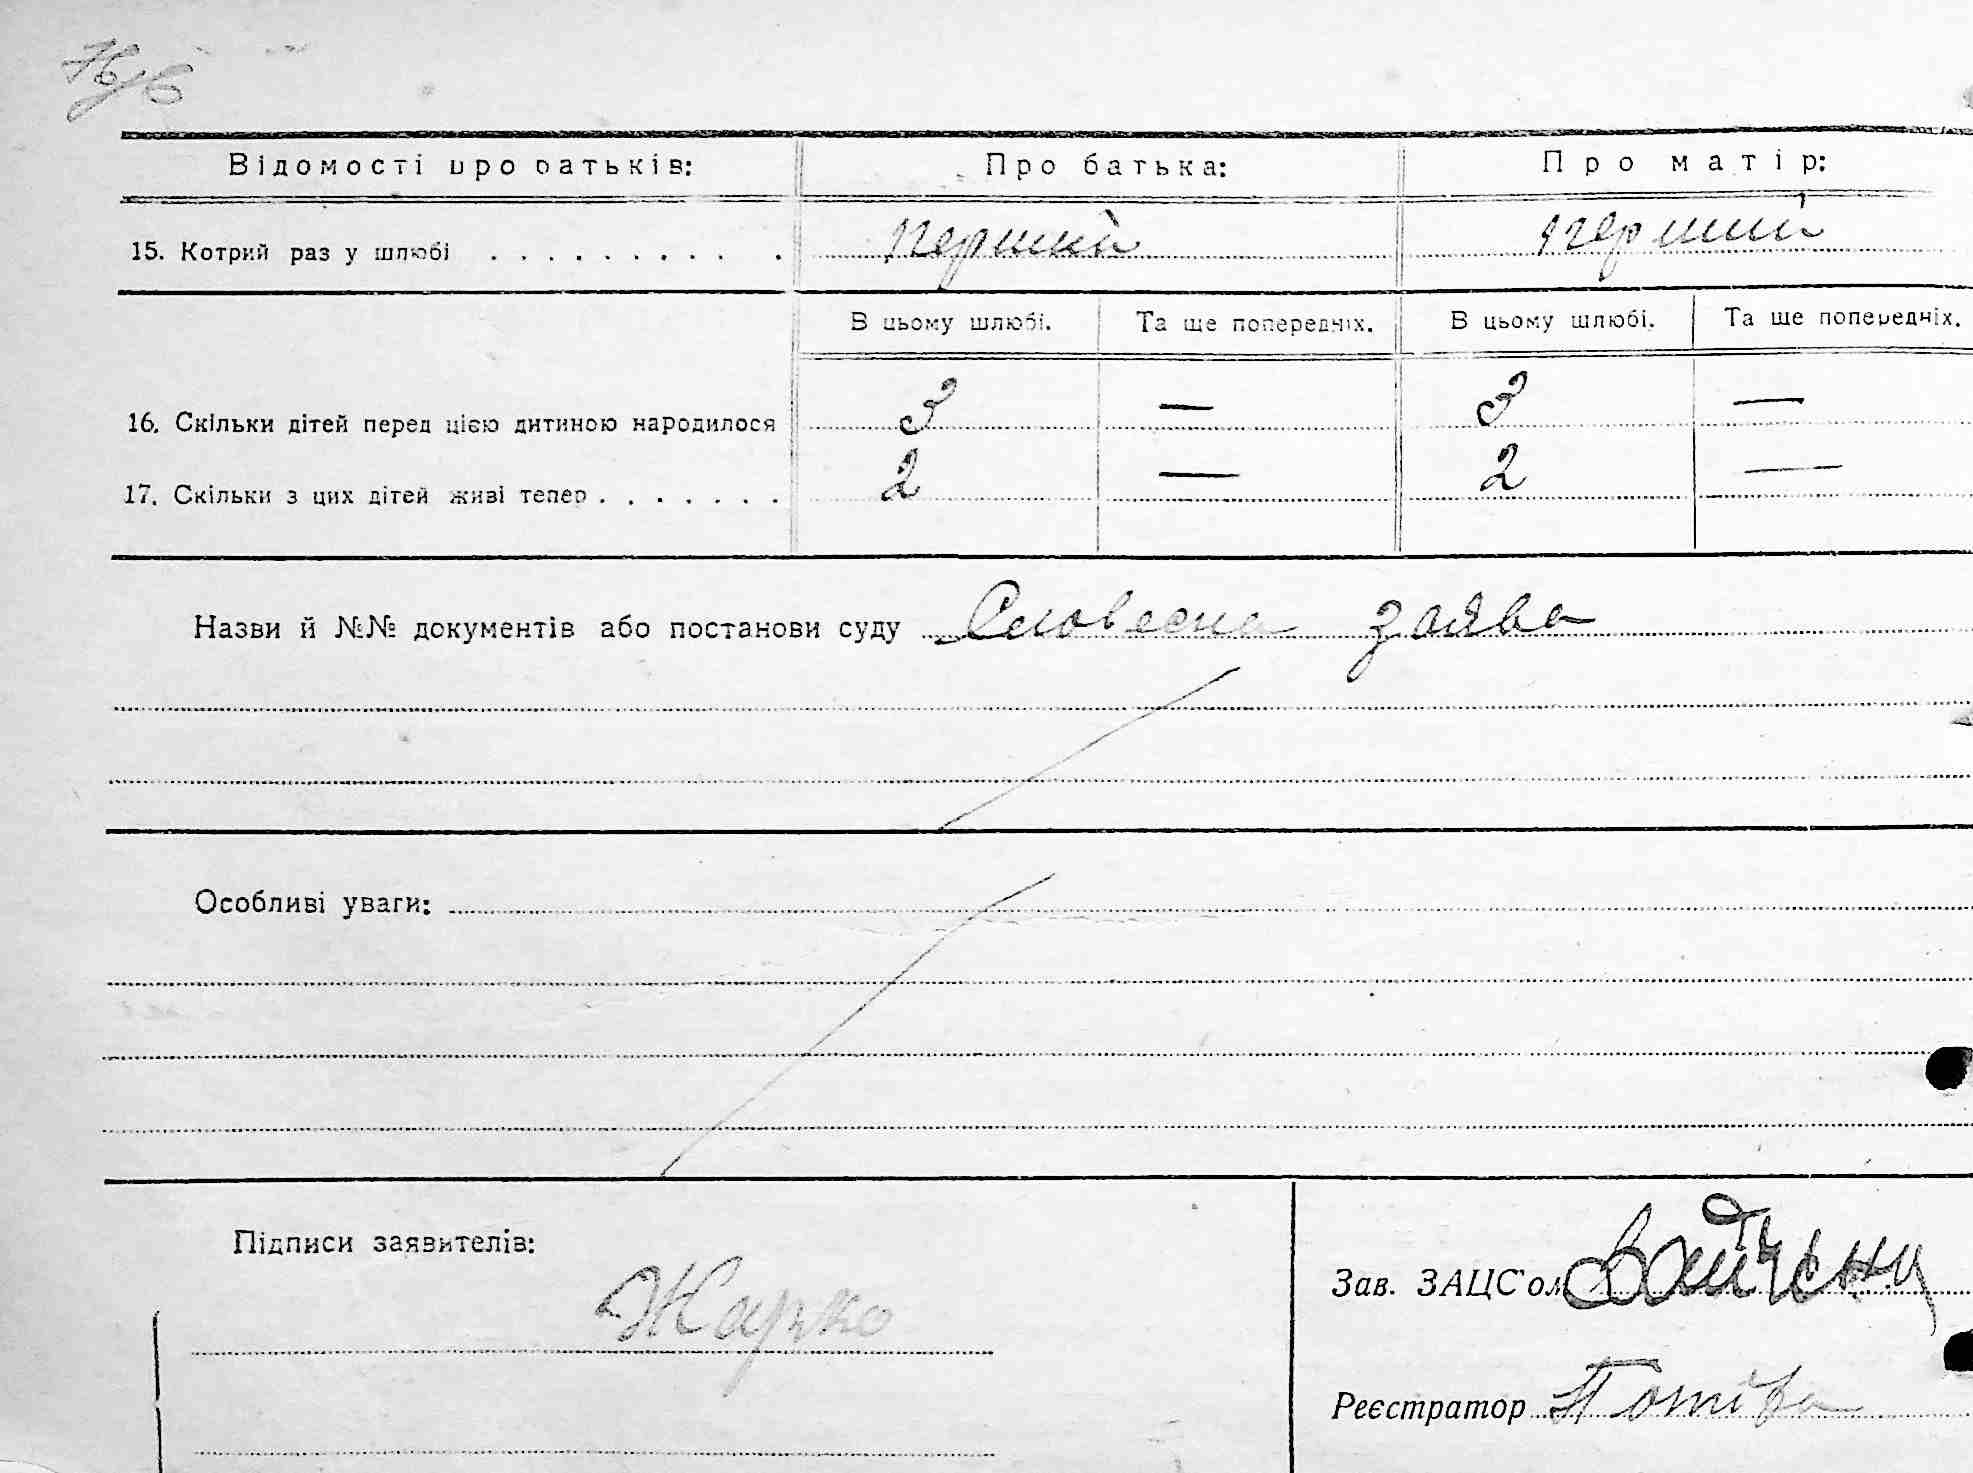 Відомості про батьків: Про батька: Про матір:
15. Котрий раз у шлюбі . . . . . . . . . . перший перший
В цьому шлюбі. Та ще попередніх. В цьому шлюбі. Та ще попередніх.
16. Скільки дітей перед цією дитиною народилося 3 — 3 —
17. Скільки з цих дітей живі тепер . . . . . . . 2 — 2 —
Назви й №№ документів або постанови суду Словесна заява
Особливі уваги:
Підписи заявителів:
Жарко
Зав. ЗАЦС'ом
Реєстратор